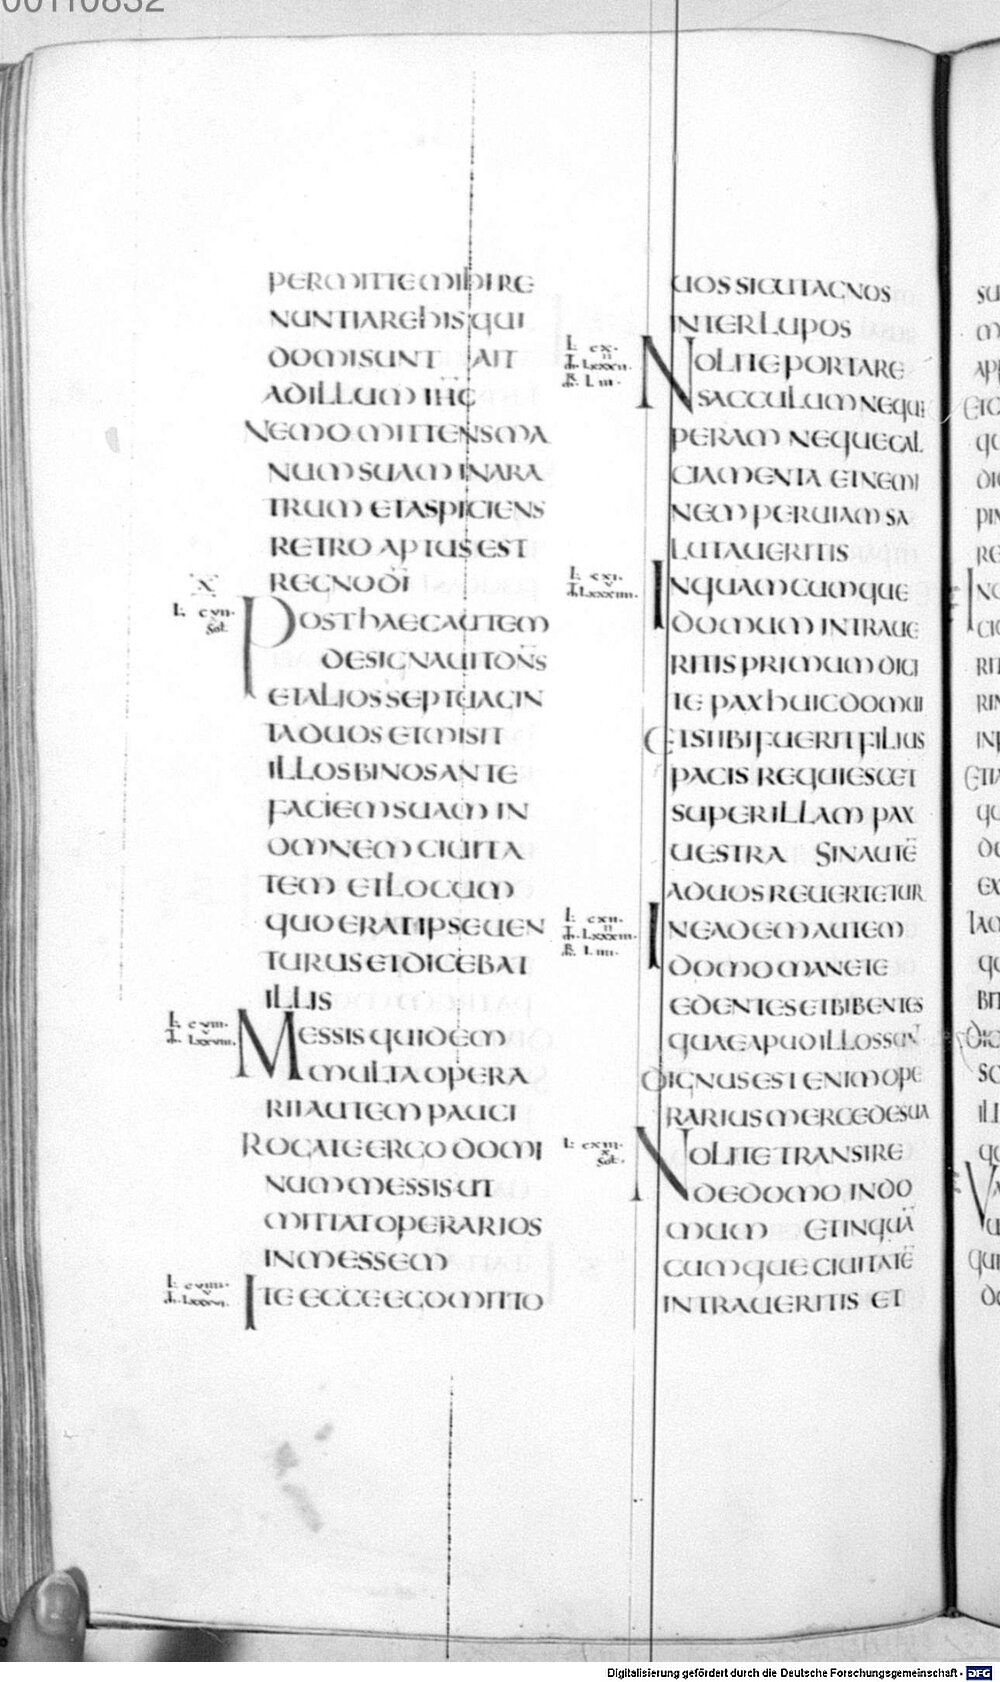 00110832
PERMITTE MIHI RE
NUNTIARE HIS QUI
DOMI SUNT AIT
AD ILLUM IHC
NEMO MITTENS MA
NUM SUAM IN ARA
TRUM ET ASPICIENS
RETRO APTUS EST
REGNO DI
X
L. CVII.
X
Sol.
POST HAEC AUTEM
DESIGNAUIT DNS
ET ALIOS SEPTUAGIN
TA DUOS ET MISIT
ILLOS BINOS ANTE
FACIEM SUAM IN
OMNEM CIUITA
TEM ET LOCUM
QUO ERAT IPSE UEN
TURUS ET DICEBAT
ILLIS
L. CVIII.
V
LXXVIII.
MESSIS QUIDEM
MULTA OPERA
RII AUTEM PAUCI
ROGATE ERGO DOMI
NUM MESSIS UT
MITTAT OPERARIOS
IN MESSEM
L. CVIIII.
V
ITE ECCE EGO MITTO
UOS SICUT AGNOS
INTER LUPOS
L. CX.
II
LXXXII.
LIII.
NOLITE PORTARE
SACCULUM NEQUE
PERAM NEQUE CAL
CIAMENTA ET NEMI
NEM PER UIAM SA
LUTAUERITIS
L. CXI.
V
LXXXIIII.
IN QUAMCUMQUE
DOMUM INTRAUE
RITIS PRIMUM DICI
TE PAX HUIC DOMUI
ET SI IBI FUERIT FILIUS
PACIS REQUIESCET
SUPER ILLAM PAX
UESTRA SIN AUTE
AD UOS REUERTETUR
L. CXII.
II
LXXXIII.
LIIII.
IN EADEM AUTEM
DOMO MANETE
EDENTES ET BIBENTES
QUAE APUD ILLOS SUNT
DIGNUS EST ENIM OPE
RARIUS MERCEDE SUA
L. CXIII.
X
Sol.
NOLITE TRANSIRE
DE DOMO IN DO
MUM ET IN QUA
CUMQUE CIUITATE
INTRAUERITIS ET
Digitalisierung gefördert durch die Deutsche Forschungsgemeinschaft - DFG